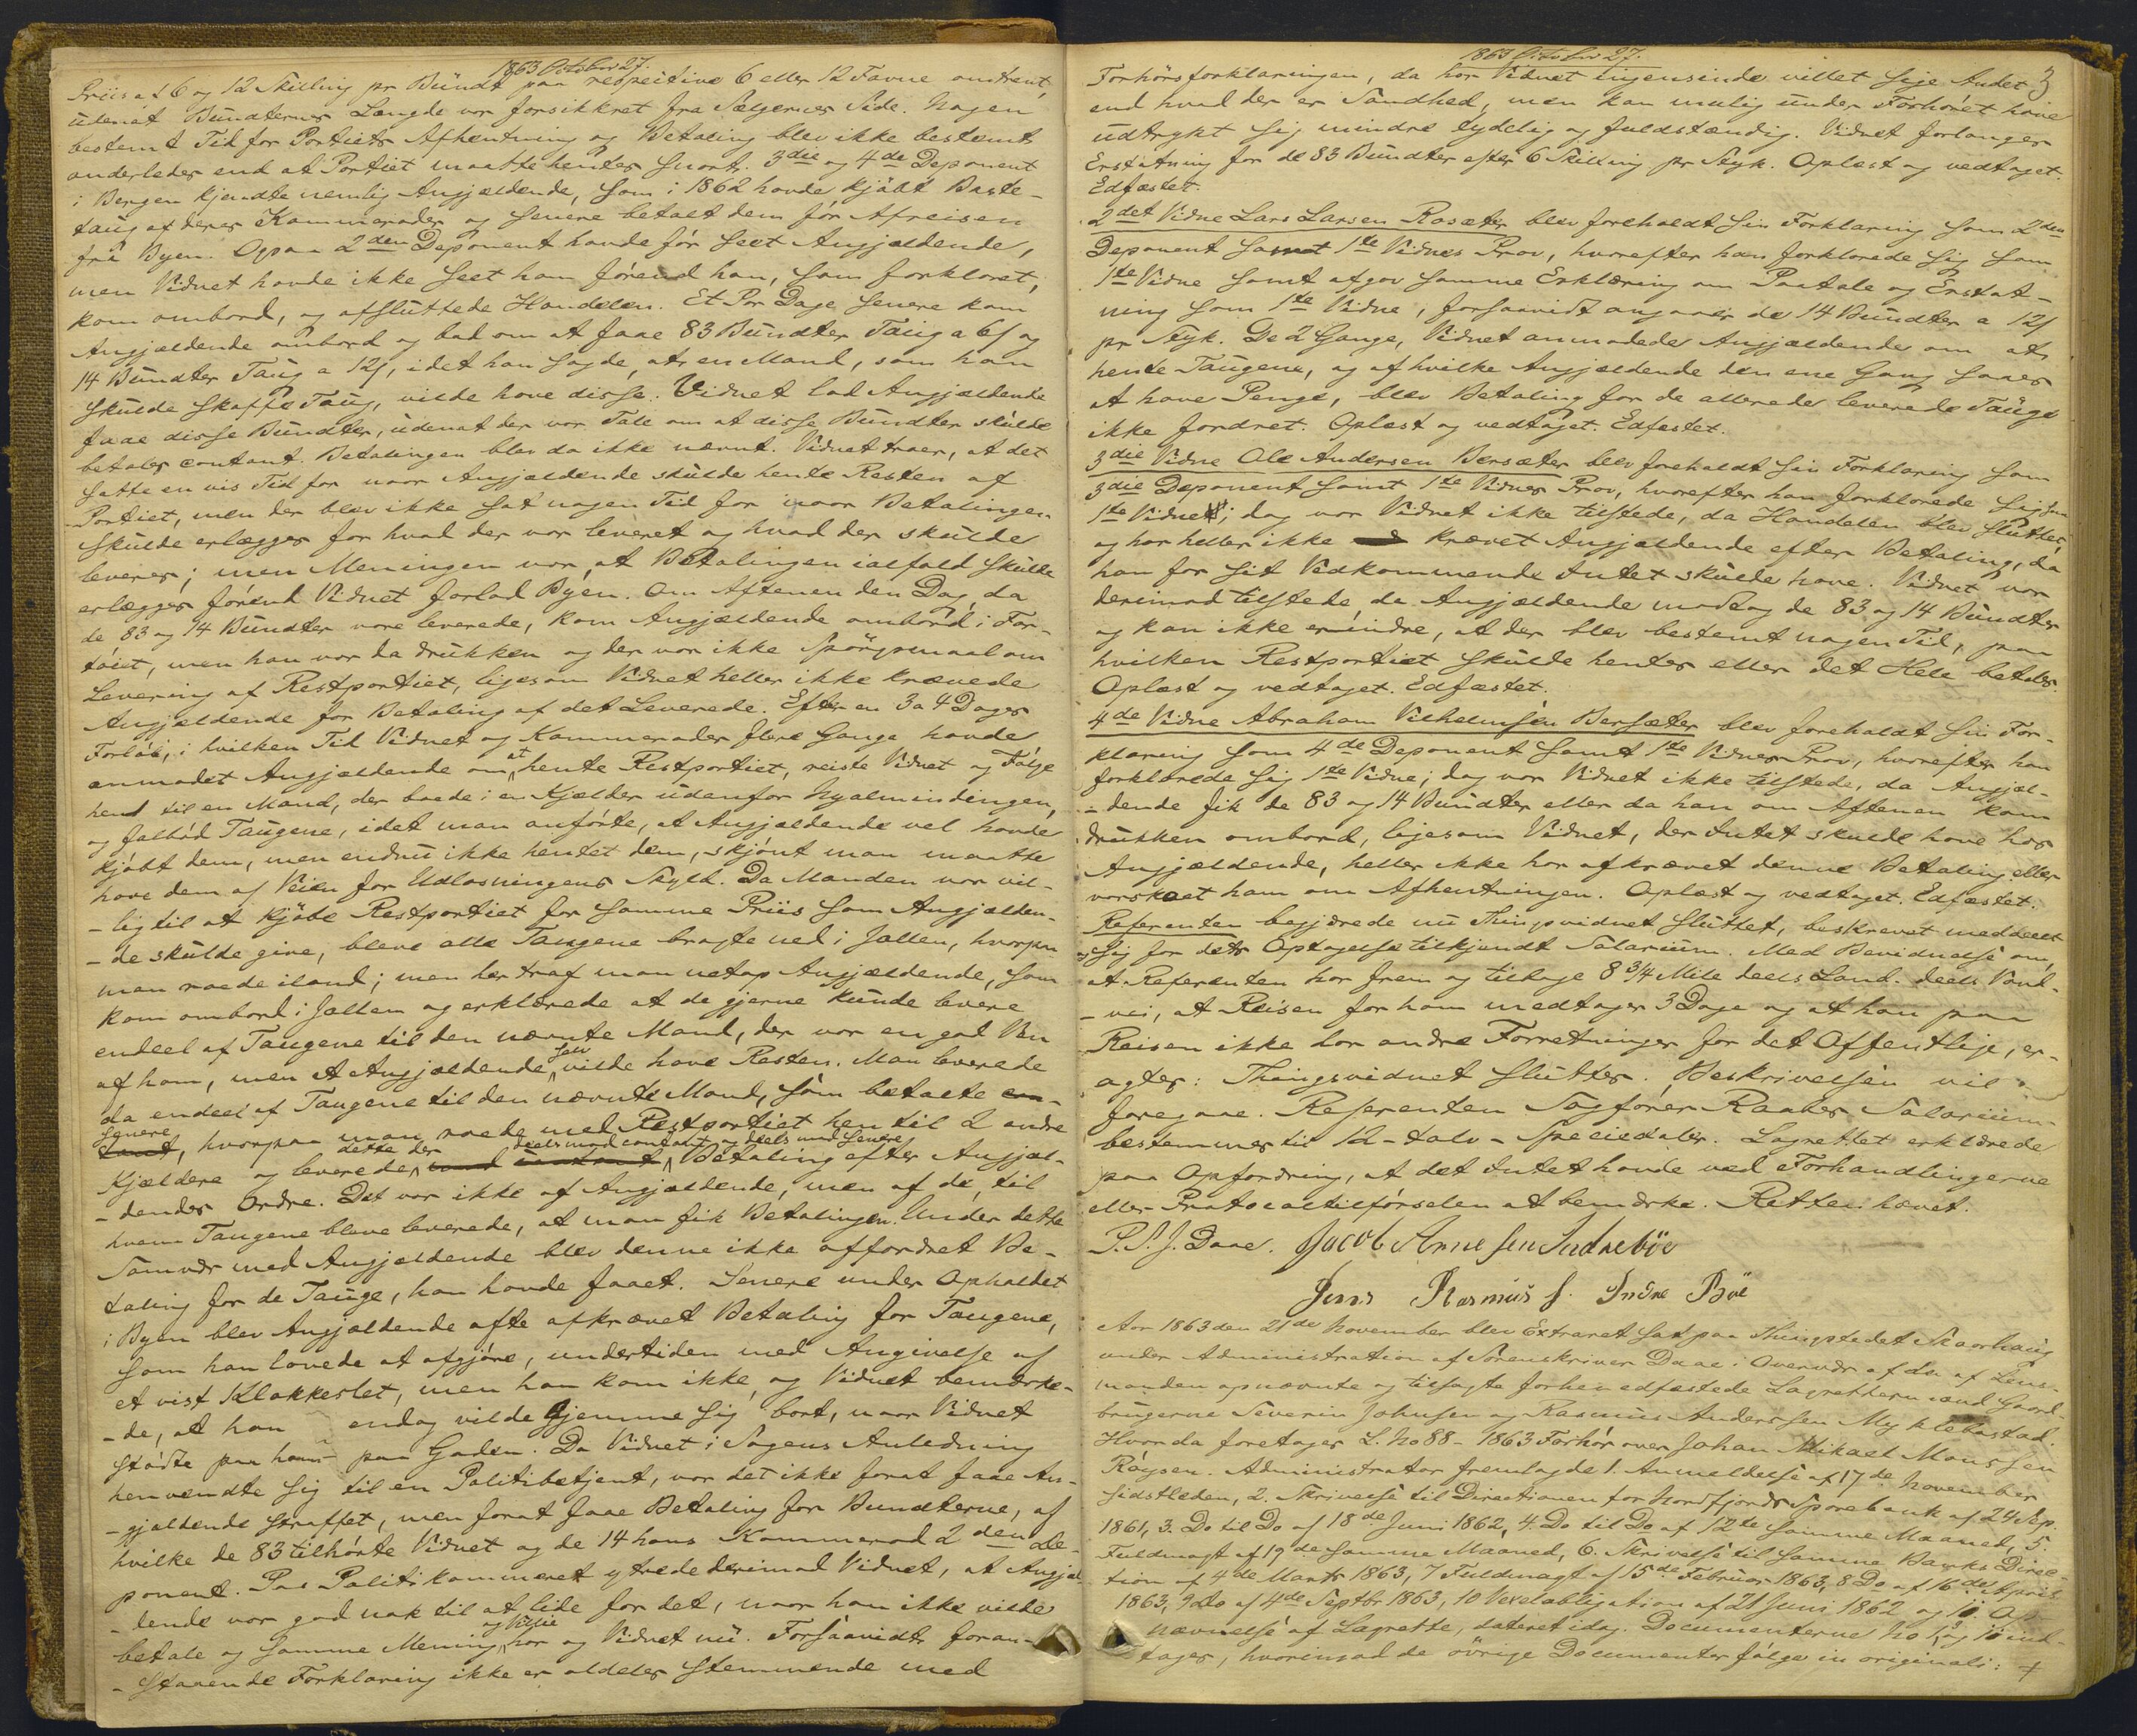 1863 October 27.
Priis af 6 og 12 Skilling pr Bundt paa respective 6 eller 12 Favne omtrent,
udenat Bundternes Længde var forsikkret fra Sælgernes Side. Nogen
bestemt Tid for Partiets Afhentning og Betaling blev ikke bestemt
anderledes end at Partiet maatte hentes snart. 3die og 4de Deponent
i Bergen kjendte nemlig Angjældende, som i 1862 havde kjöbt Baste-
taug af deres Kammerader og senere betalt dem för Afreisen
fra Byen. Ogsaa 2den Deponent havde för seet Angjældende,
men Vidnet havde ikke seet ham förend han, som forklaret,
kom ombord, og afsluttede Handelen. Et Par Dage senere kom
Angjældende ombord og bad om at faae 83 Bundter Taug a 6ſ og
14 Bundter Taug a 12ſ, idet han sagde, at en Mand, som han
skulde skaffe Taug, vilde have disse. Vidnet lod Angjældende
faae disse Bundter, udenat der var Tale om at disse Bundter skulde
betales contant. Betalingen blev da ikke nævnt. Vidnet troer, at det
satte en vis Tid for naar Angjældende skulde hente Resten af
Partiet, men der blev ikke sat nogen Tid for naar Betalingen
skulde erlægges for hvad der var leveret og hvad der skulde
leveres; men Meningen var, at Betalingen ialfald skulde
erlægges förend Vidnet forlod Byen. Om Aftenen den Dag, da
de 83 og 14 Bundter vare leverede, kom Angjældende ombord i Far-
töiet, men han var da drukken og der var ikke Spörgsmaal om
Levering af Restpartiet, ligesom Vidnet heller ikke krævede
Angjældende for Betaling af det Leverede. Efter en 3 a 4 Dages
Forlöb, i hvilken Tid Vidnet og Kammerader flere Gange havde
anmodet Angjældende om at hente Restpartiet, reiste Vidnet og Fölge
hen til en Mand, der boede i en Kjælder udenfor Nyalmindingen,
og falböd Taugene, idet man anförte, at Angjældende vel havde
kjöbt dem, men endnu ikke hentet dem, skjönt man maatte
have dem af Veien for Udlosningens Skyld. Da Manden var vil-
-lig til at kjöbe Restpartiet for samme Priis som Angjælden-
-de skulde give, bleve alle Taugene bragte ned i Jollen, hvorpaa
man roede iland; men her traf man netop Angjældende, som
kom ombord i Jollen og erklærede at de gjerne kunde levere
endeel af Taugene til den nævnte Mand, der var en god Ven
af ham, men at Angjældende selv vilde have Resten. Man leverede
da endeel af Taugene til den nævnte Mand, som betalte
senere, hvorpaa man roede med Restpartiet hen til 2 andre
Kjældere og leverede dette der deels mod contant og deels mod senere Betaling efter Angjæl-
-dendes Ordre. Det var ikke af Angjældende, men af de, til
hvem Taugene bleve leverede, at man fik Betalingen. Under dette
Samvær med Angjældende blev denne ikke affordret Be-
taling for de Tauge, han havde faaet. Senere under Opholdet
i Byen blev Angjældende ofte afkrævet Betaling for Taugene,
som han lovede at afgjöre, undertiden med Angivelse af
et vist Klokkeslet, men han kom ikke, og Vidnet bemærke-
-de, at han endog vilde gjemme sig bort, naar Vidnet
stödte paa ham paa Gaden. Da Vidnet i Sagens Anledning
henvendte sig til en Politibetjent, var det ikke forat faae An-
-gjældende straffet, men forat faae Betaling for Bundterne, af
hvilke de 83 tilhörte Vidnet og de 14 hans Kammerad 2den De-
ponent. Paa Politikammeret ytrede derimod Vidnet, at Angjæl-
-dende var god nok til at lide for det, naar han ikke vilde
betale og samme Mening og Villie har og Vidnet nu. Forsaavidt foran-
-staaende Forklaring ikke er aldeles stemmende med
1863 October 27.
3
Forhörsforklaringen, da har Vidnet ingensinde villet sige Andet
end hvad der er Sandhed, men kan mulig under Forhöret have
udtrykt sig mindre tydelig og fuldstændig. Vidnet forlanger
Erstatning for de 83 Bundter efter 6 Skilling pr Styk. Oplæst og vedtaget.
Edfæstet.
2det Vidne Lars Larsen Rasæter blev foreholdt sin Forklaring som 2den
Deponent samt 1ste Vidnes Prov, hvorefter han forklarede sig som
1ste Vidne samt afgav samme Erklæring om Paatale og Erstat-
ning som 1ste Vidne, forsaavidt angaaer de 14 Bundter a 12ſ
pr Styk. De 2 Gange, Vidnet anmodede Angjældende om at
hente Taugene, og af hvilke Angjældende den ene Gang saaes
at have Penge, blev Betaling for de allerede leverede Tauge
ikke fordret. Oplæst og vedtaget. Edfæstet.
3die Vidne Ole Andersen Bersæter blev foreholdt sin Forklaring som
3die Deponent samt 1ste Vidnes Prov, hvorefter han forklarede sig som
1ste Vidne; dog var Vidnet ikke tilstede, da Handelen blev sluttet,
og har heller ikke krævet Angjældende efter Betaling, da
han for sit Vedkommende Intet skulde have. Vidnet var
derimod tilstede, da Angjældende modtog de 83 og 14 Bundter
og kan ikke erindre, at der blev bestemt nogen Tid, paa
hvilken Restpartiet skulde hentes eller det Hele betales.
Oplæst og vedtaget. Edfæstet.
4de Vidne Abraham Vilhelmsen Bersæter blev foreholdt sin For-
klaring som 4de Deponent samt 1ste Vidnes Prov, hvorefter han
forklarede sig 1ste Vidne; dog var Vidnet ikke tilstede, da Angjæl-
-dende fik de 83 og 14 Bundter eller da han om Aftenen kom
drukken ombord, ligesom Vidnet, der Intet skulde have hos
Angjældende, heller ikke har afkrævet denne Betaling eller
varskoet ham om Afhentningen. Oplæst og vedtaget. Edfæstet.
Referenten begjærede nu Thingsvidnet sluttet, beskrevet meddeelt
og sig for dets Optagelse tilkjendt Salarium. Med Bevidnelse om,
at Referenten har frem og tilbage 8 3/4 Mile deels Land- deels Vand-
-vei, at Reisen for ham medtager 3 Dage og at han paa
Reisen ikke har andre Forretninger for det Offentlige, er-
agtes: Thingsvidnet sluttes. Beskrivelsen vil
foregaae. Referenten Sagförer Raabes Salarium
bestemmes til 12 - tolv - Speciedaler. Lagrettet erklærede
paa Opfordring, at det Intet havde ved Forhandlingerne
eller Protocoltilförselen at bemærke. Retten hævet.
P. P. J. Daae. Jacob Arnesen Indreböe
Jens Rasmus J. Indre Böe
Aar 1863 den 21de November blev Extraret sat paa Thingstedet Skaarhaug
under Administration af Sorenskriver Daae i Overvær af de af Lens-
manden opnævnte og tilsagte forhen edfæstede Lagrettemænd Gaard-
brugerne Severin Johnsen og Rasmus Anderssen Myklebostad.
Hvor da foretoges L. No 88 - 1863 Forhör over Johan Mikael Monssen
Röysen. Administrator fremlagde 1. Anmeldelse af 17de November
sidstleden, 2. Skrivelse til Directionen for Nordfjords Sparebank af 24 Sep.
1861, 3. Do til Do af 18de Juni 1862, 4. Do til Do af 12te samme Maaned, 5.
Fuldmagt af 19de samme Maaned, 6. Skrivelse til samme Banks Direc-
tion af 4de Marts 1863, 7 Fuldmagt af 15de Februar 1863, 8 Do af 16de April
1863, 9 Do af 4de Septbr 1863, 10 Vexelobligation af 21 Juni 1862 og 11. Op-
nævnelse af Lagrette, dateret idag. Documenterne No 1, og 10 ind-
tages, hvorimod de övrige Documenter fölge in originali: